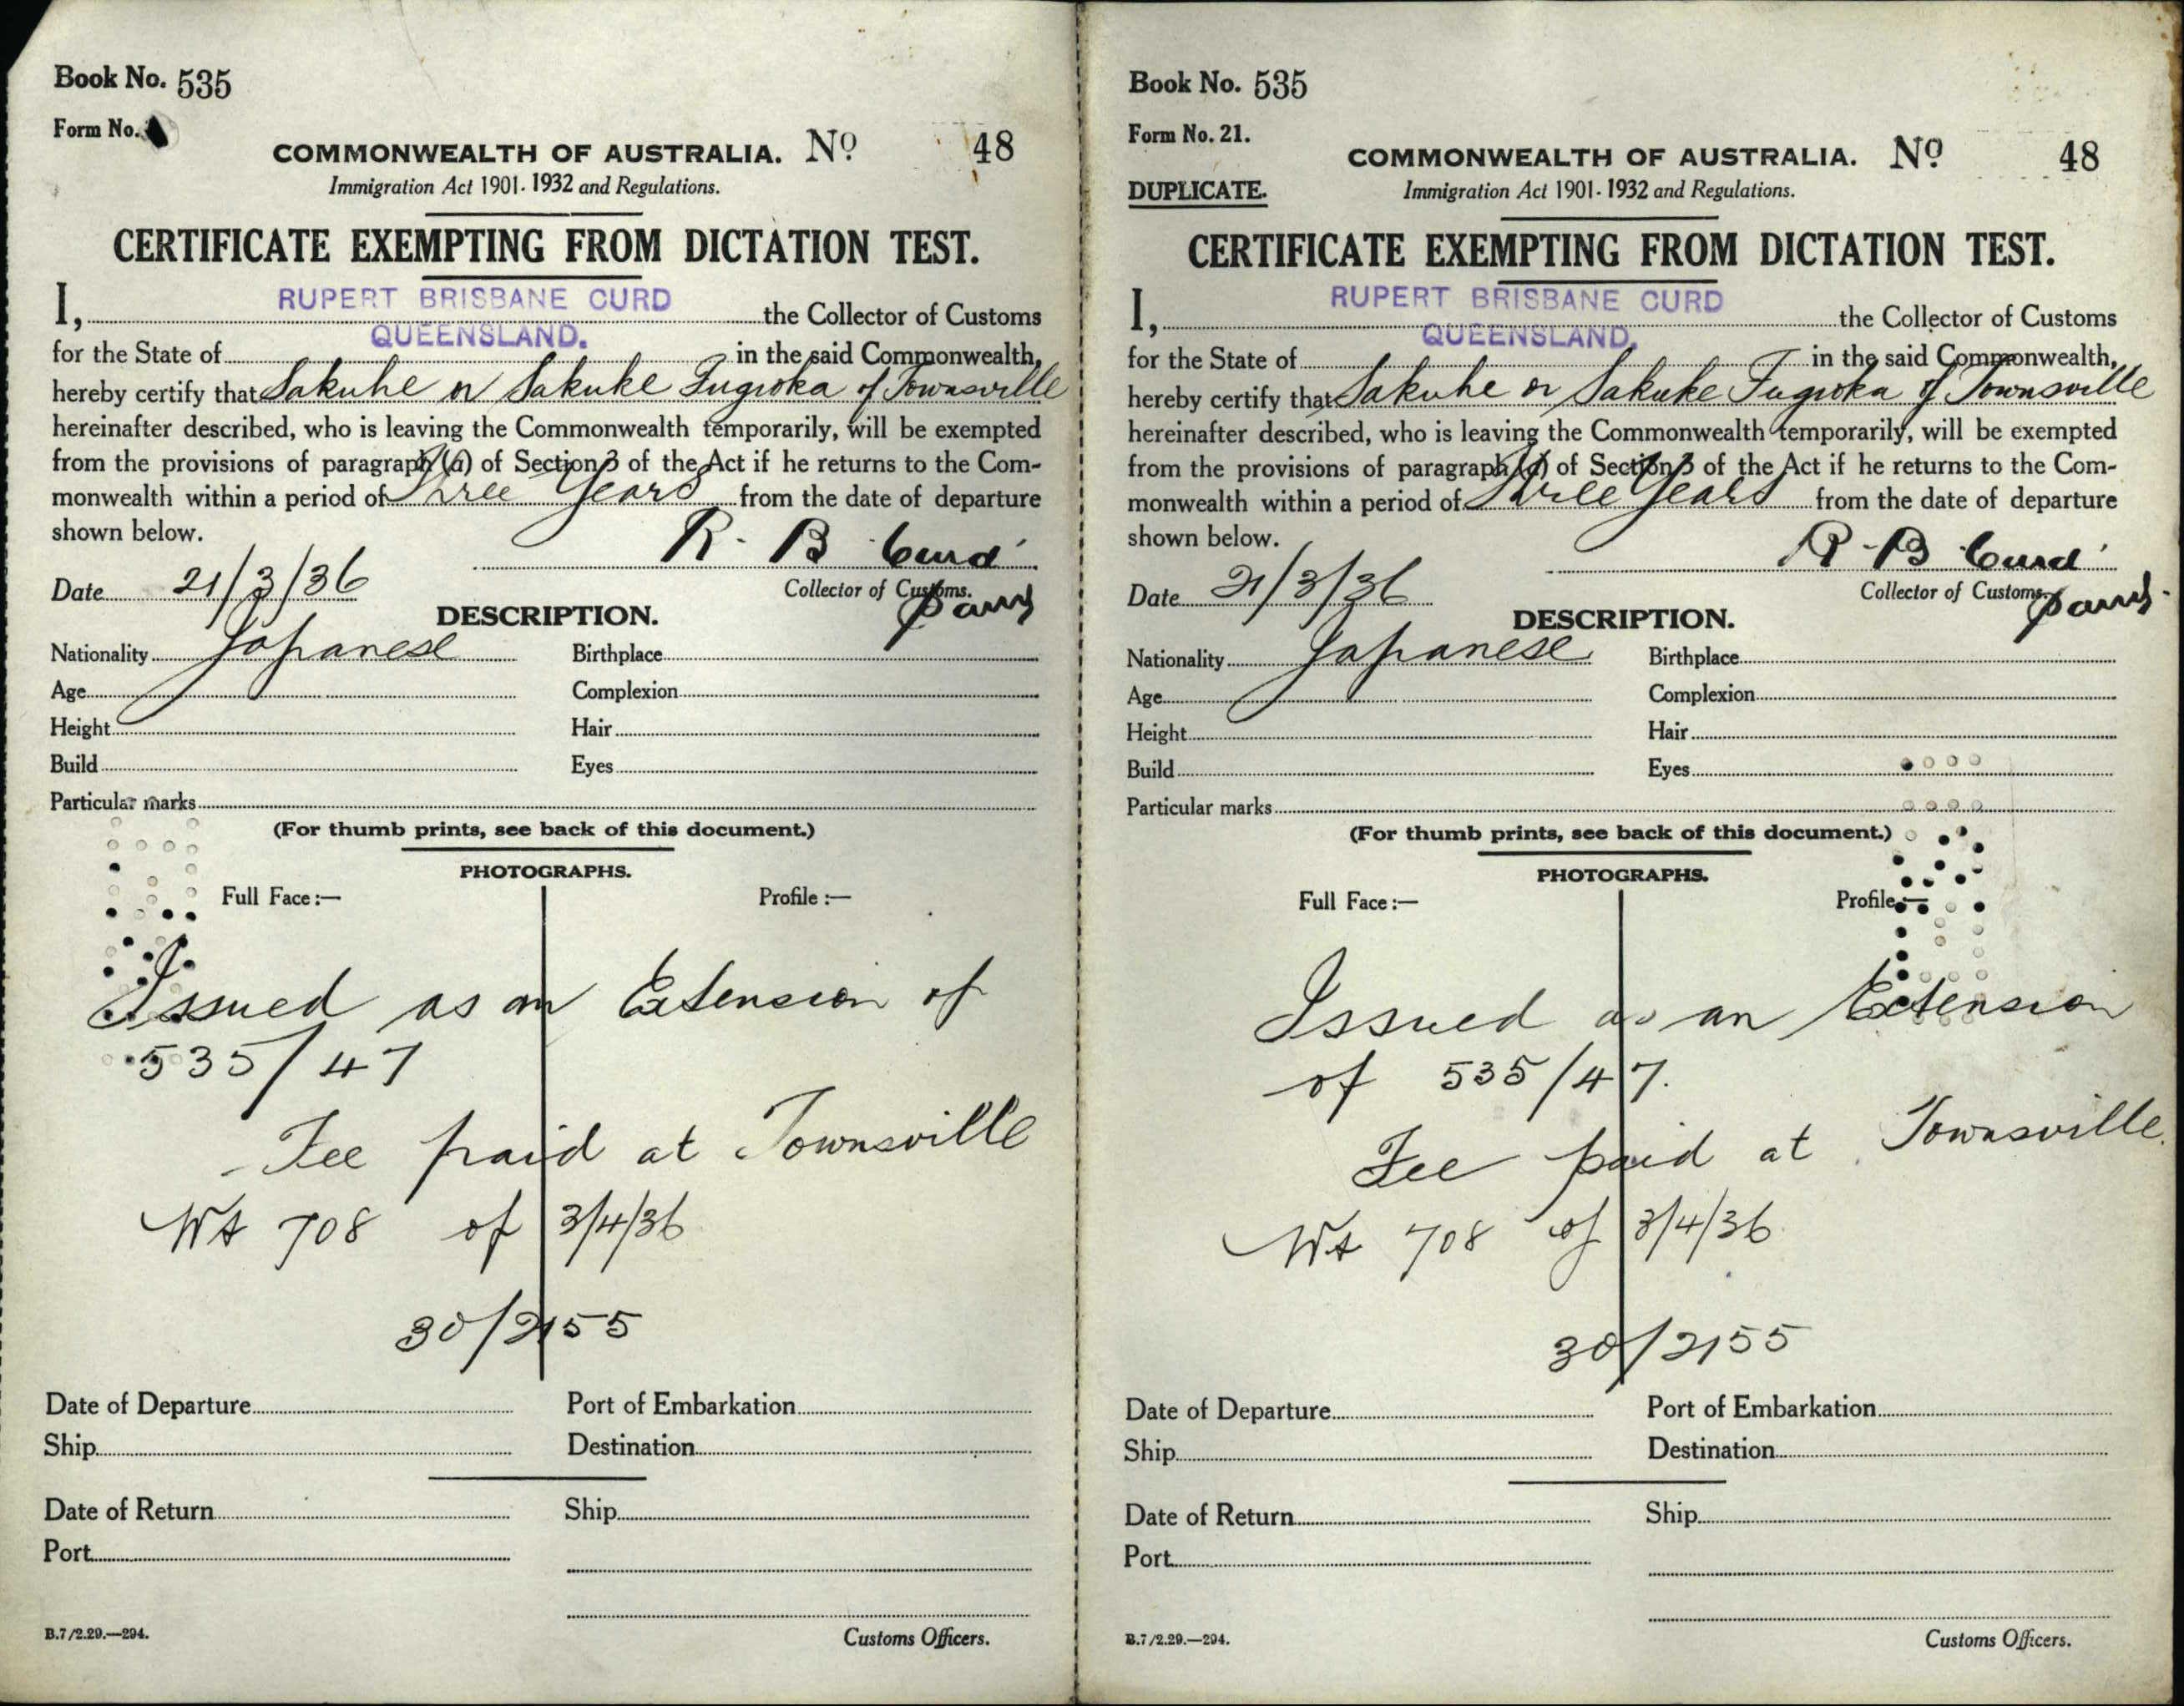 Book No. 535
Form No.
COMMONWEALTH OF AUSTRALIA. No 48
Immigration Act 1901-1932 and Regulations.
CERTIFICATE EXEMPTING FROM DICTATION TEST.
I, RUPERT BRISBANE CURD the Collector of Customs
for the State of QUEENSLAND. in the said Commonwealth,
hereby certify that Sakuhe or Sakuke Fugioka of Townsville
hereinafter described, who is leaving the Commonwealth temporarily, will be exempted
from the provisions of paragraph (a) of Section 3 of the Act if he returns to the Com-
monwealth within a period of Three Years from the date of departure
shown below.
R. B Curd
Date 21/3/36 Collector of Customs.
DESCRIPTION.
Nationality Japanese Birthplace
Age Complexion
Height Hair
Build Eyes
Particular marks
(For thumb prints, see back of this document.)
PHOTOGRAPHS.
Full Face :— Profile :—
Issued as an Extension of
535/47
Fee paid at Townsville
708 of 3/4/36
30/2155
Date of Departure Port of Embarkation
Ship Destination
Date of Return Ship
Port
B.7/2.29.—294. Customs Officers.
Book No. 535
Form No. 21.
COMMONWEALTH OF AUSTRALIA. No 48
DUPLICATE. Immigration Act 1901-1932 and Regulations.
CERTIFICATE EXEMPTING FROM DICTATION TEST.
I, RUPERT BRISBANE CURD the Collector of Customs
for the State of QUEENSLAND. in the said Commonwealth,
hereby certify that Sakuhe or Sakuke Fugioka of Townsville
hereinafter described, who is leaving the Commonwealth temporarily, will be exempted
from the provisions of paragraph (a) of Section 3 of the Act if he returns to the Com-
monwealth within a period of Three Years from the date of departure
shown below.
R. B Curd
Date 21/3/36 Collector of Customs.
DESCRIPTION.
Nationality Japanese Birthplace
Age Complexion
Height Hair
Build Eyes
Particular marks
(For thumb prints, see back of this document.)
PHOTOGRAPHS.
Full Face :— Profile :—
Issued as an Extension
of 535/47.
Fee paid at Townsville.
708 of 3/4/36
30/2155
Date of Departure Port of Embarkation
Ship Destination
Date of Return Ship
Port
B.7/2.29.—294. Customs Officers.